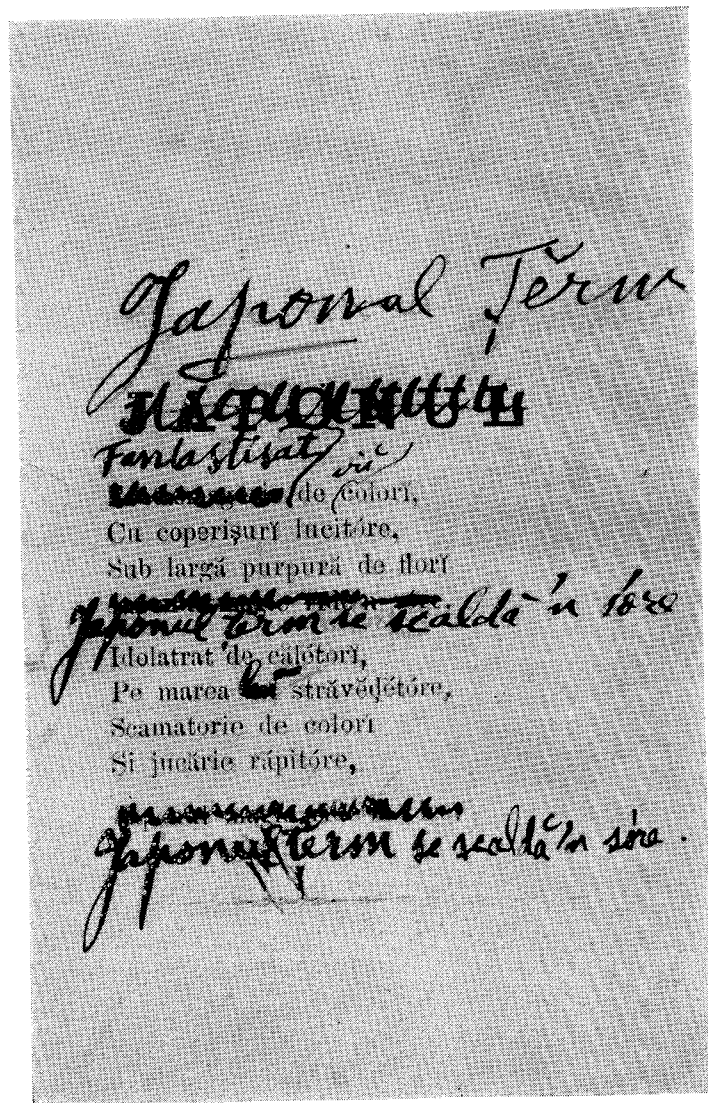 Japonul Țĕrm
JAPONUL
Fantastisat
viĕ
de colorĭ,
Cu coperișurĭ lucitóre,
Sub largă purpură de florĭ
Japonul țerm se scaldă 'n sóre
Idolatrat de călĕtorĭ,
Pe marea străvĕḑĕtóre,
Scamatorie de colorĭ
Și jucărie răpitóre,
Japonul țĕrm se scaldă 'n sóre.